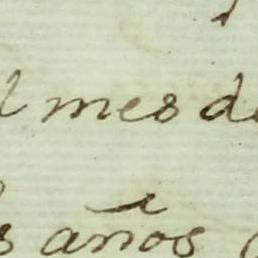 l mes de
s años